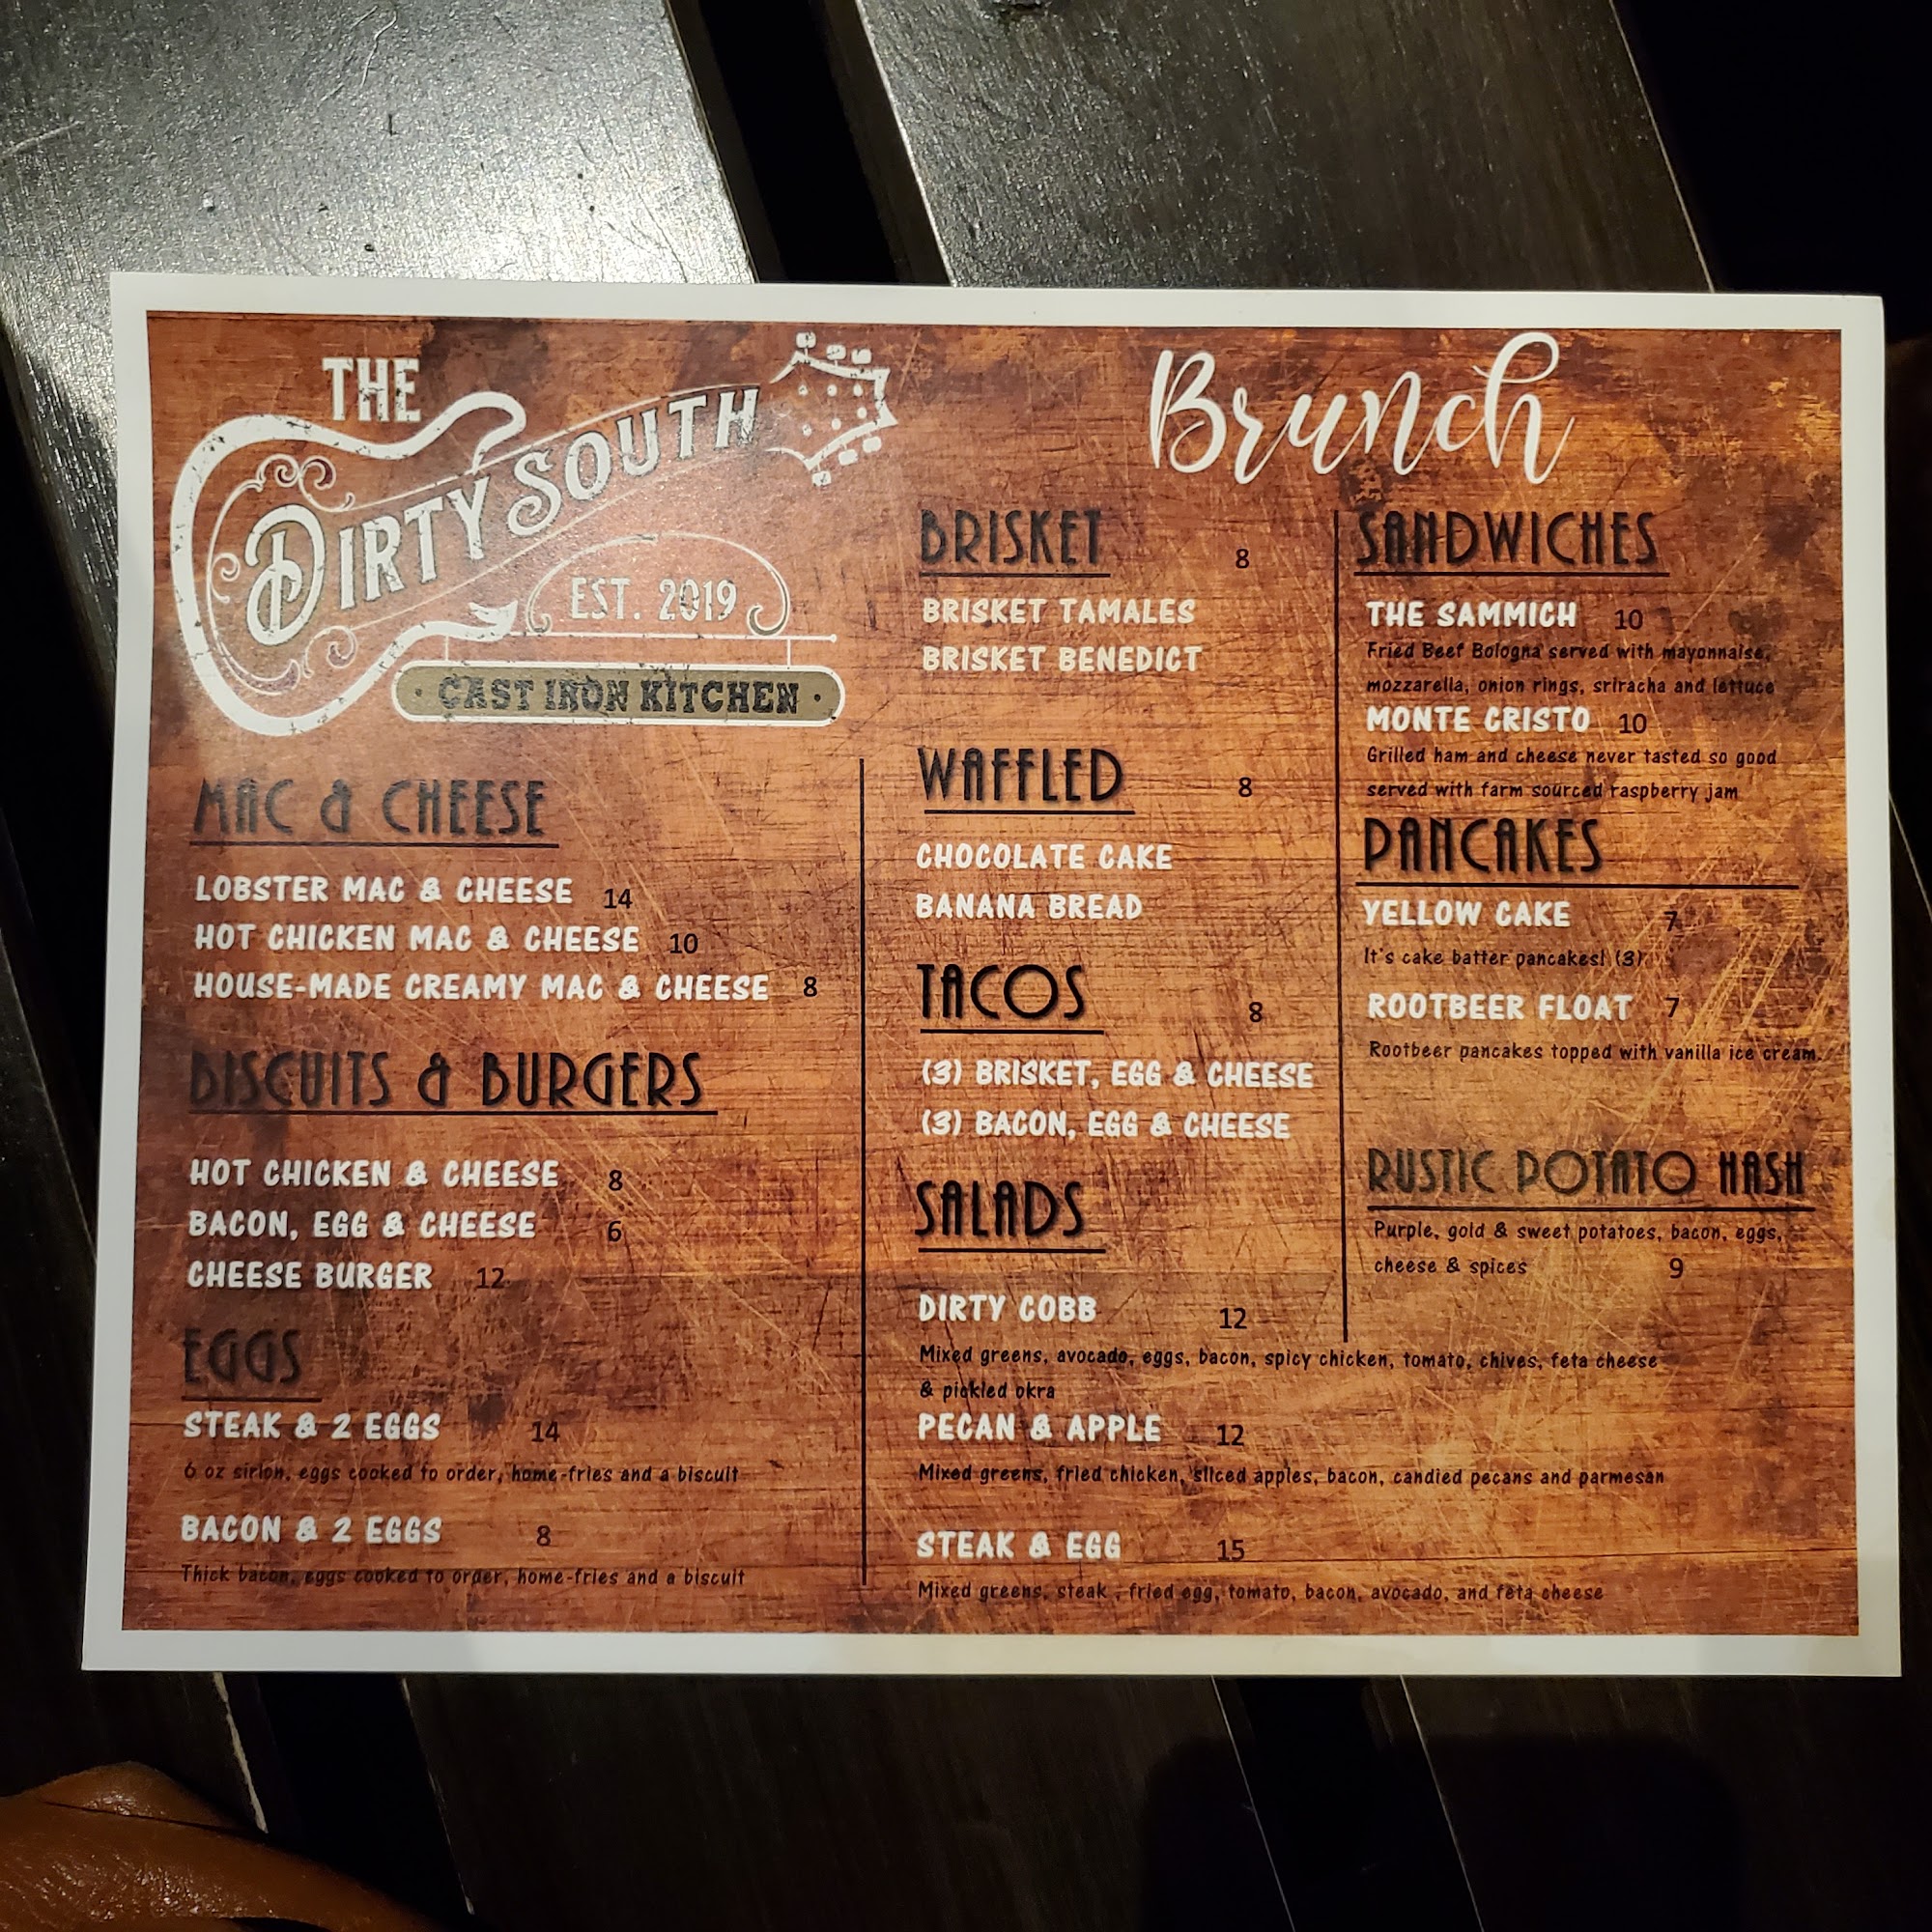 THE
DIRTY SOUTH
EST. 2019
· CAST IRON KITCHEN ·
Brunch
MAC & CHEESE
LOBSTER MAC & CHEESE 14
HOT CHICKEN MAC & CHEESE 10
HOUSE-MADE CREAMY MAC & CHEESE 8
BISCUITS & BURGERS
HOT CHICKEN & CHEESE 8
BACON, EGG & CHEESE 6
CHEESE BURGER 12
EGGS
STEAK & 2 EGGS 14
6 oz sirlon, eggs cooked to order, home-fries and a biscuit
BACON & 2 EGGS 8
Thick bacon, eggs cooked to order, home-fries and a biscuit
BRISKET 8
BRISKET TAMALES
BRISKET BENEDICT
WAFFLED 8
CHOCOLATE CAKE
BANANA BREAD
TACOS 8
(3) BRISKET, EGG & CHEESE
(3) BACON, EGG & CHEESE
SALADS
DIRTY COBB 12
Mixed greens, avocado, eggs, bacon, spicy chicken, tomato, chives, feta cheese
& pickled okra
PECAN & APPLE 12
Mixed greens, fried chicken, sliced apples, bacon, candied pecans and parmesan
STEAK & EGG 15
Mixed greens, steak , fried egg, tomato, bacon, avocado, and feta cheese
SANDWICHES
THE SAMMICH 10
Fried Beef Bologna served with mayonnaise,
mozzarella, onion rings, sriracha and lettuce
MONTE CRISTO 10
Grilled ham and cheese never tasted so good
served with farm sourced raspberry jam
PANCAKES
YELLOW CAKE 7
It's cake batter pancakes! (3)
ROOTBEER FLOAT 7
Rootbeer pancakes topped with vanilla ice cream.
RUSTIC POTATO HASH
Purple, gold & sweet potatoes, bacon, eggs,
cheese & spices 9